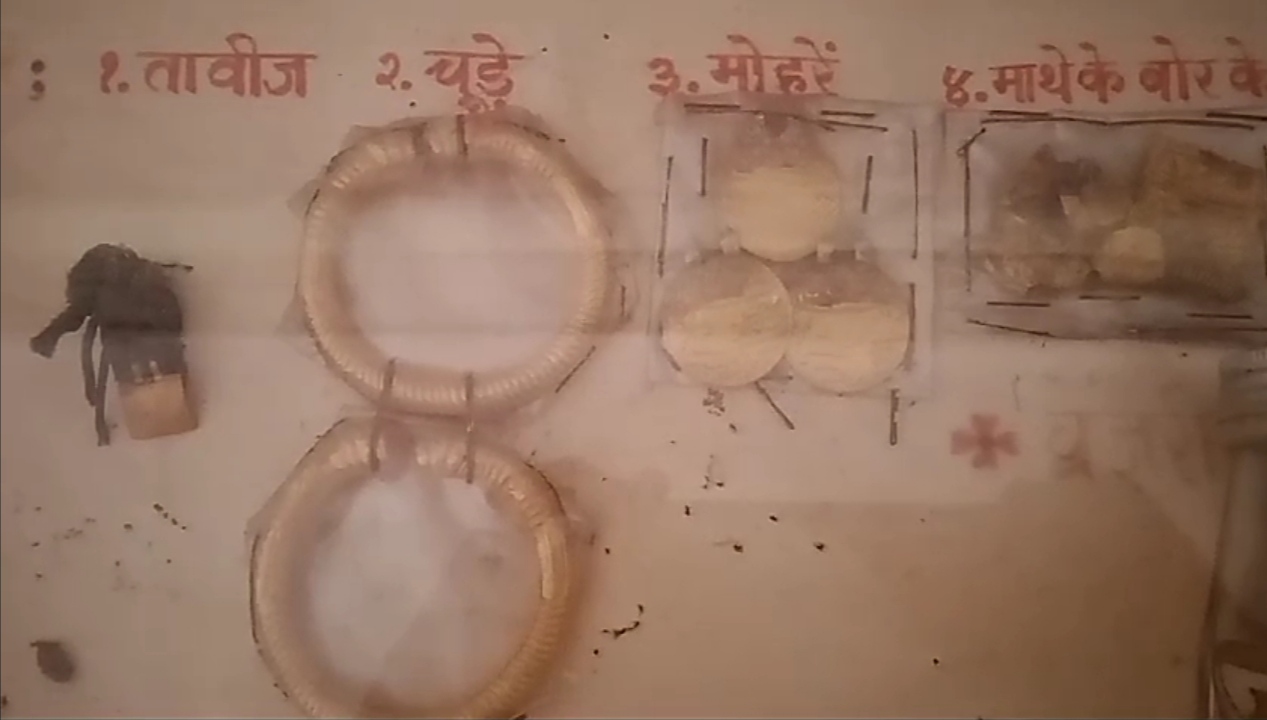 : १. तावीज २. चूड़े ३. मोहरें ४. माथे के बोर के